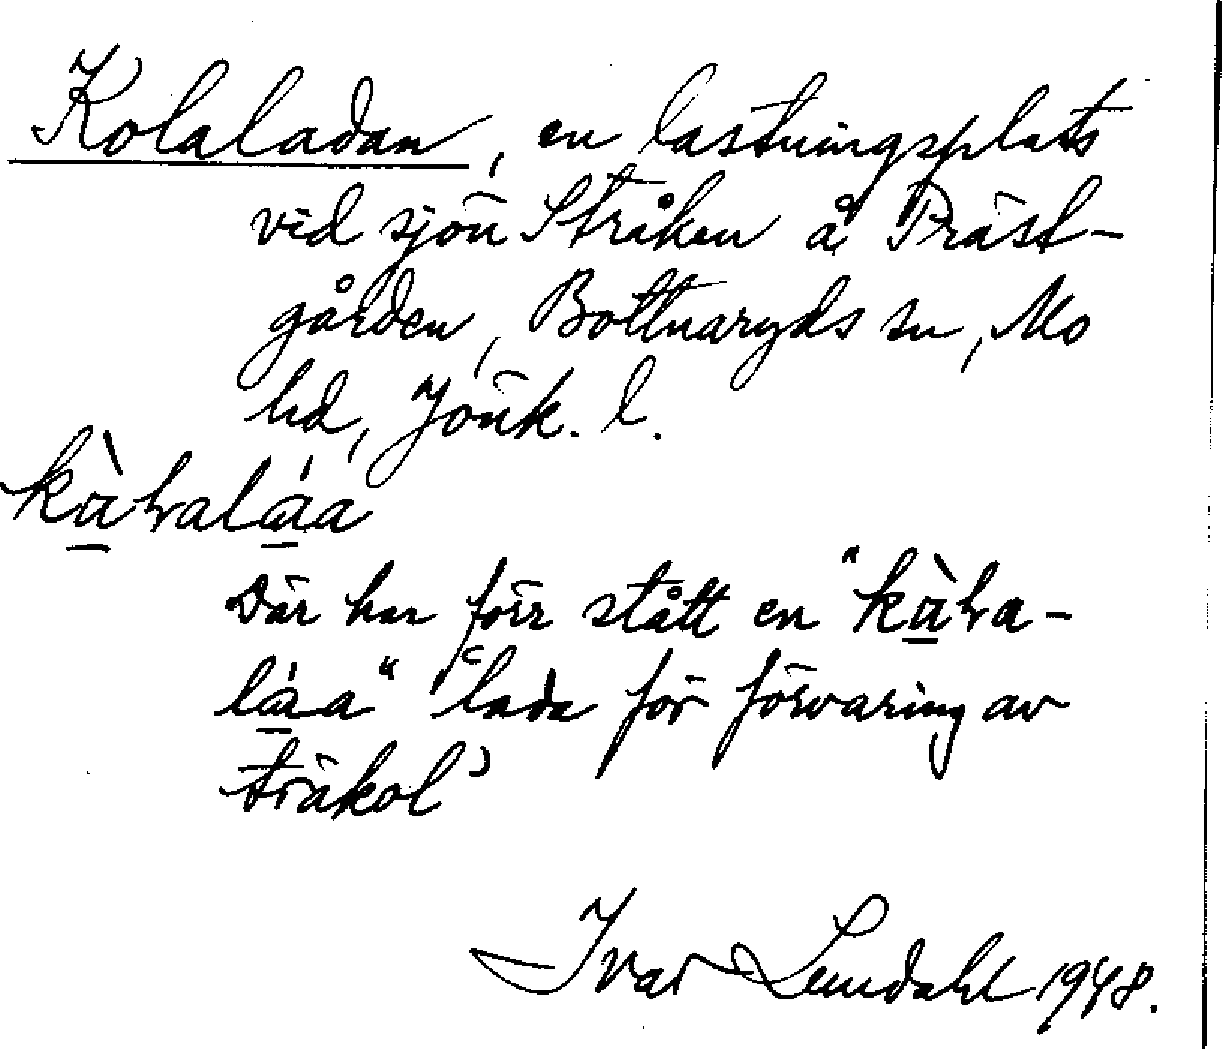 Kolaladan, en lastningsplats
vid sjön Stråken å Präst-
gården, Bottnaryds sn, Mo
hd, Jönk. l.
Där har förr stått en
"lada för förvaring av
träkol"
Ivar Lundahl 1948.